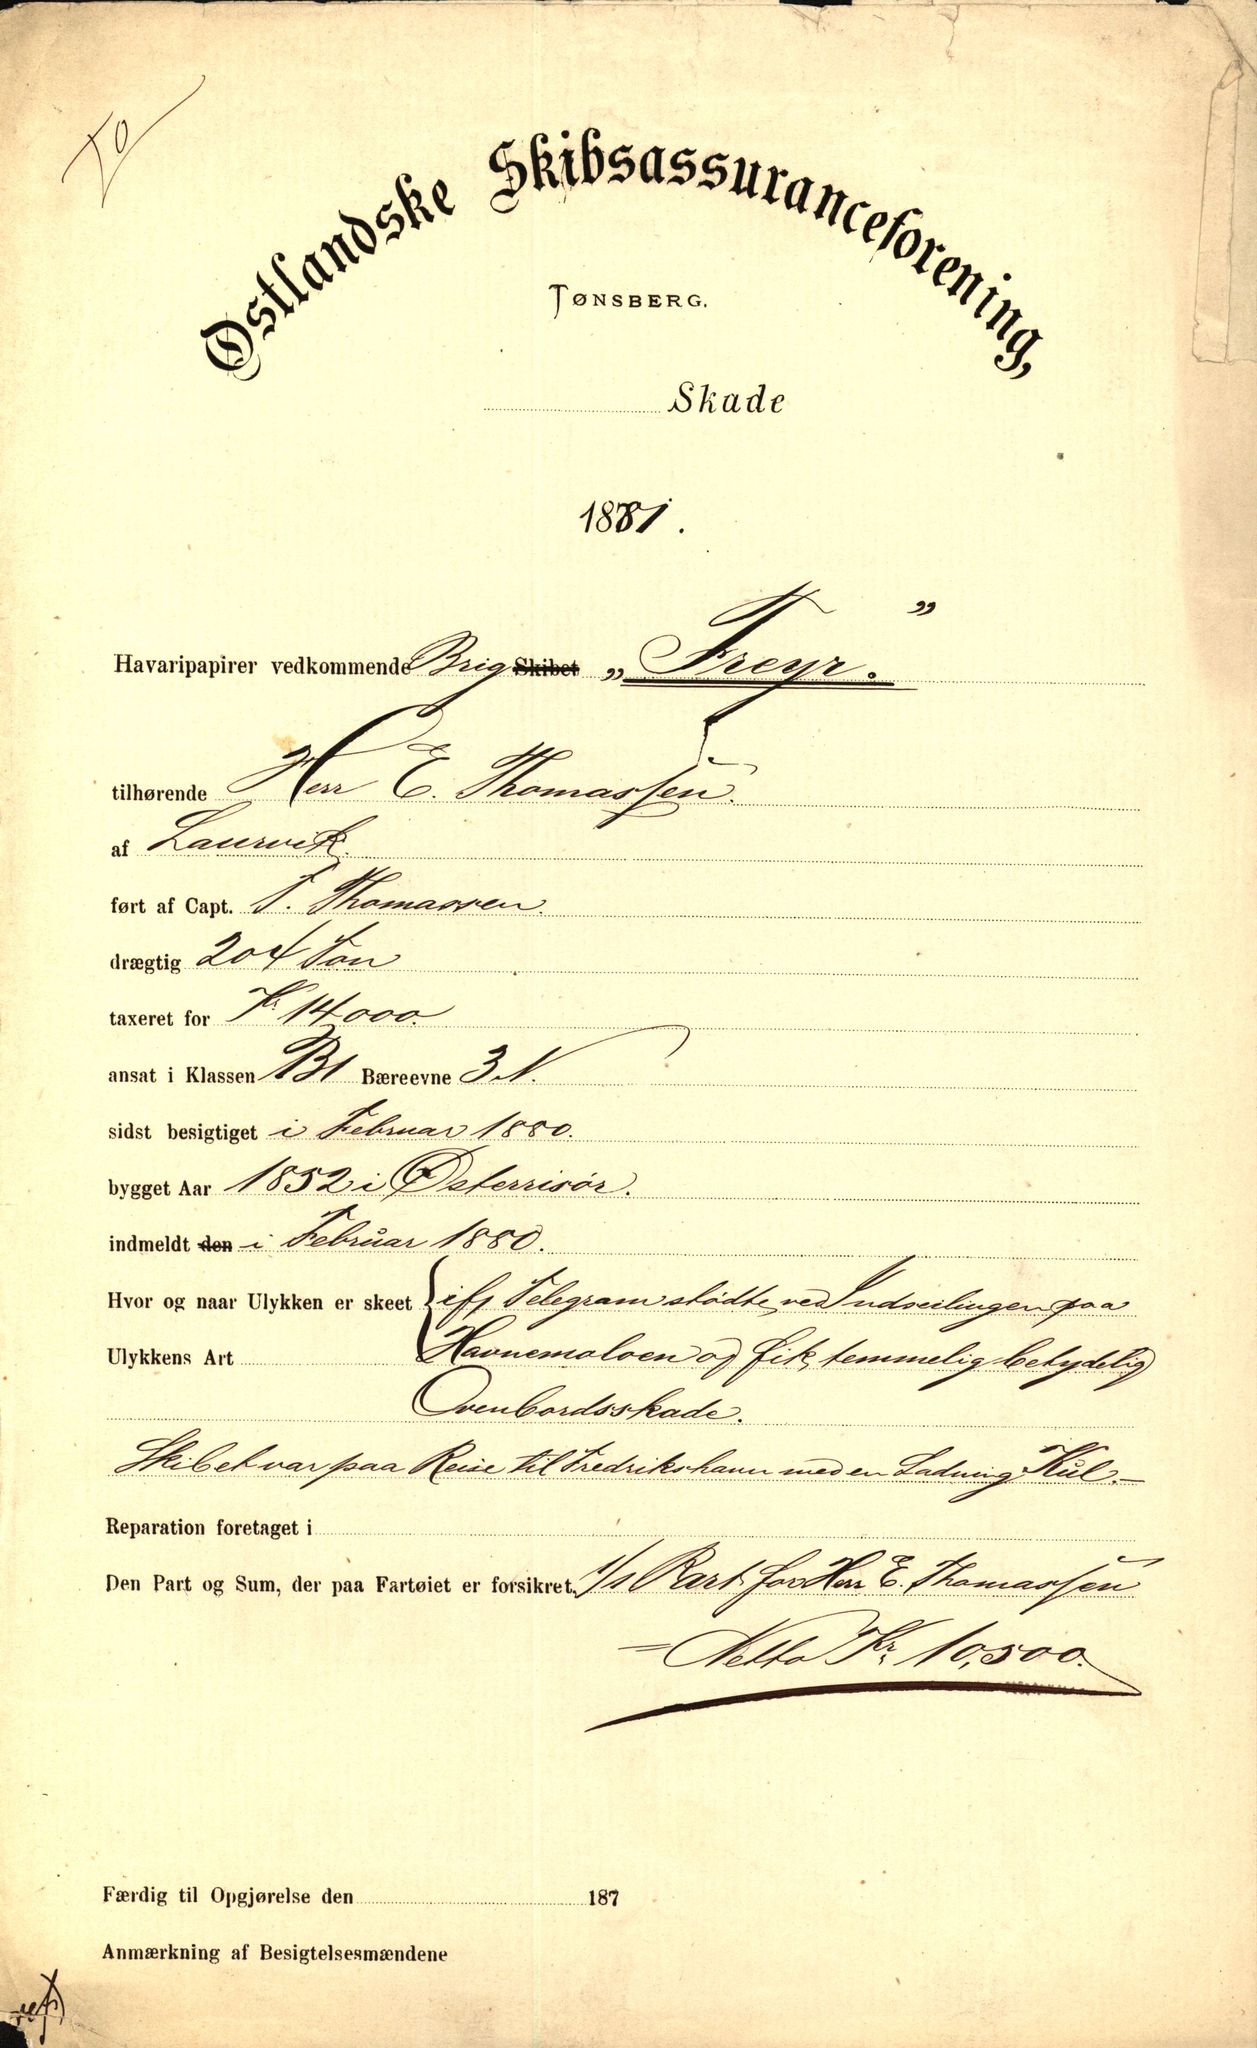 Østlandske Skibsassuranceforening,
TØNSBERG.
Skade
1881.
Havaripapirer vedkommende Brig Skibet „Freyr.”
tilhørende Herr E. Thomassen.
af Laurvik.
ført af Capt. T. Thomassen.
drægtig 204 Ton
taxeret for Kr. 14000.
ansat i Klassen B1 Bæreevne 3 N.
sidst besigtiget i Februar 1880.
bygget Aar 1852 i Østerrisör.
indmeldt den i Februar 1880.
Hvor og naar Ulykken er skeet { ifl Telegram stödte ved Indseilingen paa
Ulykkens Art Havnemoloen og fik temmelig betydelig
Ovenbordsskade.
Skibet var paa Reise til Fredrikshavn med en Ladning Kul.—
Reparation foretaget i
Den Part og Sum, der paa Fartøiet er forsikret. 1/1 Part for Herr E. Thomassen
= Netto Kr. 10,500.
Færdig til Opgjørelse den 187
Anmærkning af Besigtelsesmændene